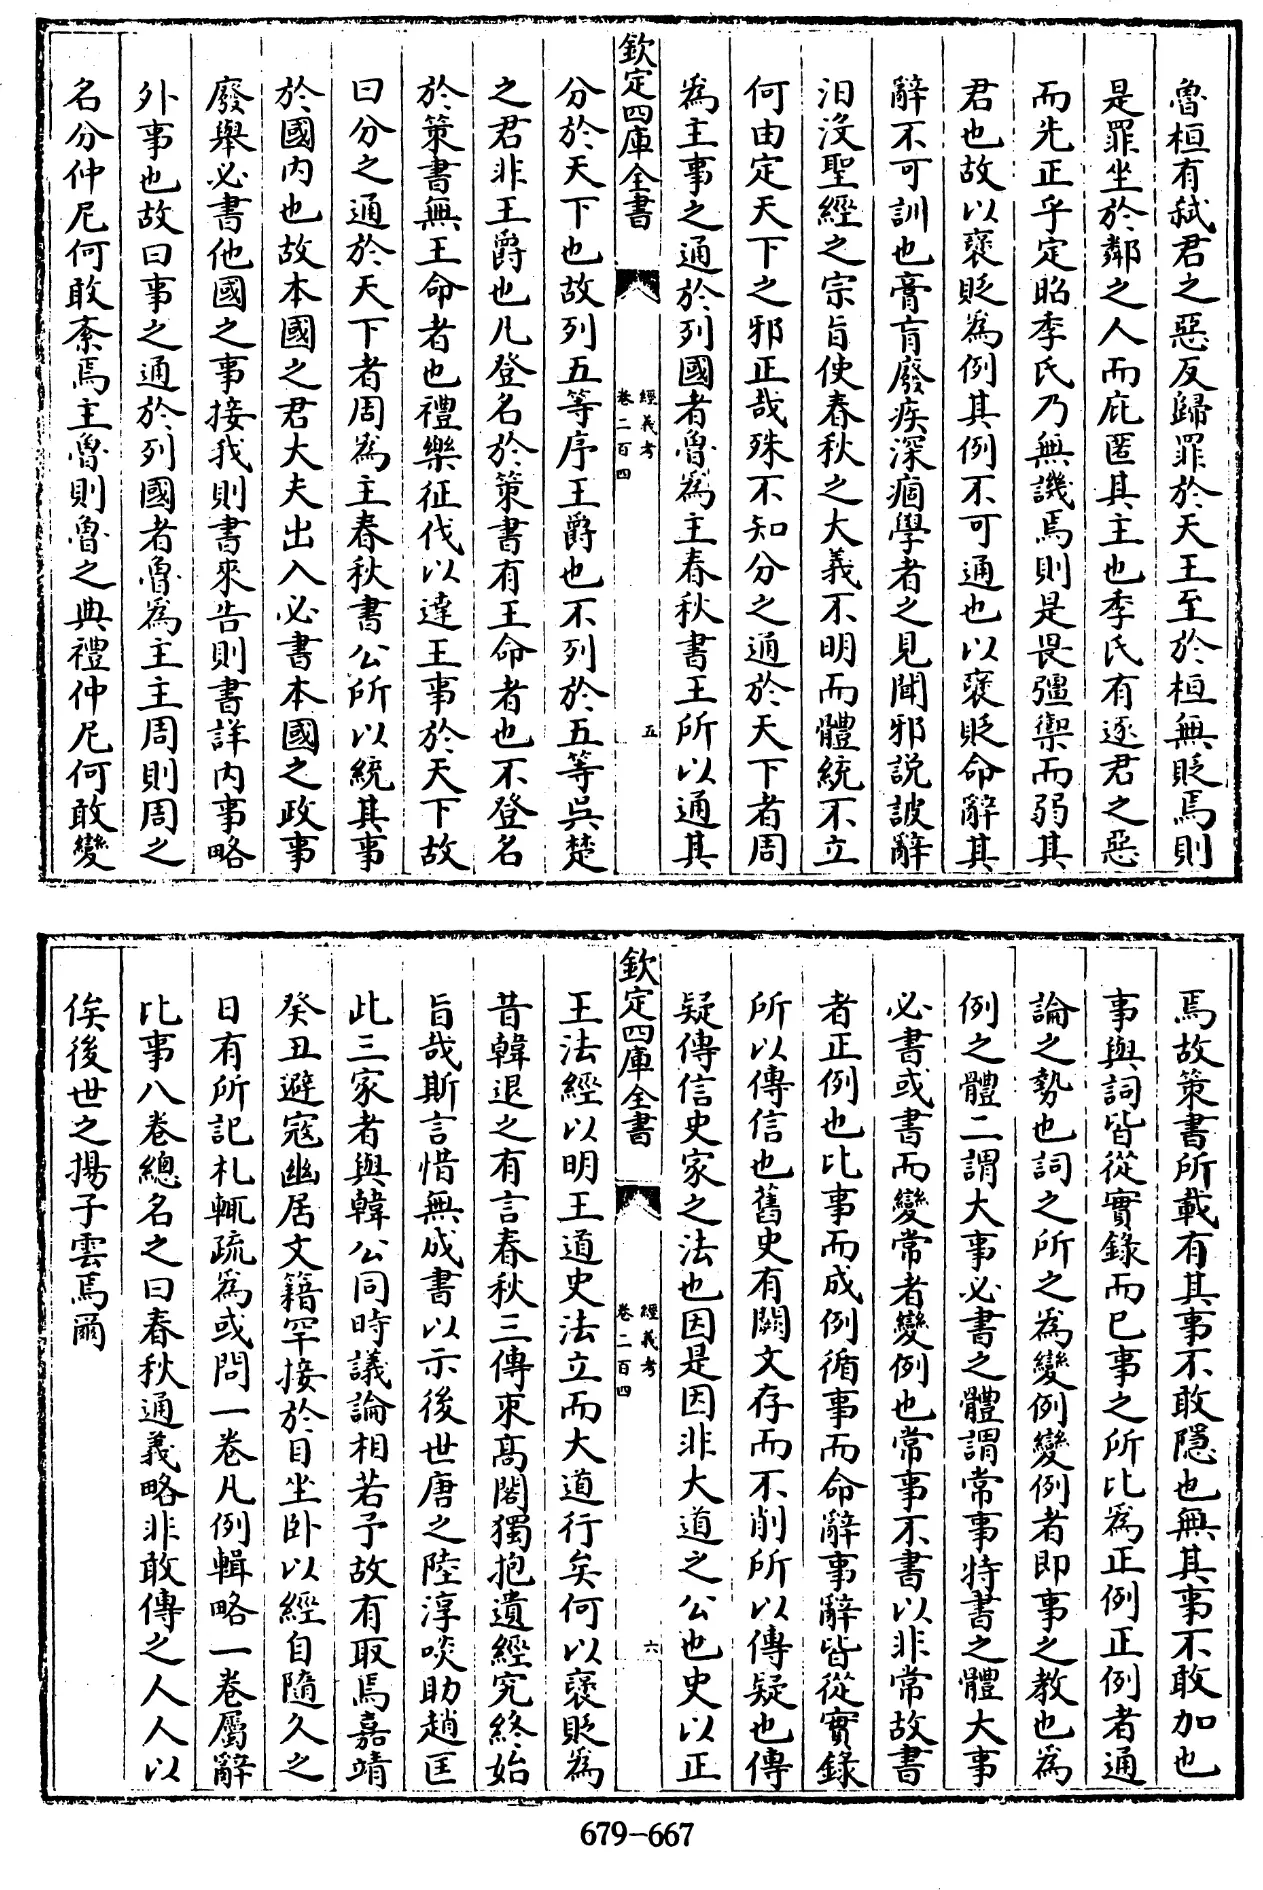 魯桓有弑君之惡反歸罪於天王至於桓無貶焉則
是罪坐於鄰之人而庇匿其主也季氏有逐君之惡
而先正乎定昭季氏乃無譏焉則是畏彊禦而弱其
君也故以襃貶為例其例不可通也以襃貶命辭其
辭不可訓也膏肓廢疾深痼學者之見聞邪説詖辭
汨沒聖經之宗旨使春秋之大義不明而體統不立
何由定天下之邪正哉殊不知分之通於天下者周
為主事之通於列國者魯為主春秋書王所以通其
欽定四庫全書
經義考
卷二百四
五
分於天下也故列五等序王爵也不列於五等吳楚
之君非王爵也凡登名於策書有王命者也不登名
於策書無王命者也禮樂征伐以達王事於天下故
曰分之通於天下者周為主春秋書公所以統其事
於國内也故本國之君大夫出入必書本國之政事
廢舉必書他國之事接我則書來告則書詳内事略
外事也故曰事之通於列國者魯為主主周則周之
名分仲尼何敢紊焉主魯則魯之典禮仲尼何敢變
焉故策書所載有其事不敢隱也無其事不敢加也
事與詞皆從實錄而已事之所比為正例正例者通
論之勢也詞之所之為變例變例者即事之教也為
例之體二謂大事必書之體謂常事特書之體大事
必書或書而變常者變例也常事不書以非常故書
者正例也比事而成例循事而命辭事辭皆從實錄
所以傳信也舊史有闕文存而不削所以傳疑也傳
疑傳信史家之法也因是因非大道之公也史以正
欽定四庫全書
經義考
卷二百四
六
王法經以明王道史法立而大道行矣何以襃貶為
昔韓退之有言春秋三傳束高閣獨抱遺經究終始
旨哉斯言惜無成書以示後世唐之陸淳啖助趙匡
此三家者與韓公同時議論相若予故有取焉嘉靖
癸丑避寇幽居文籍罕接於目坐卧以經自隨久之
日有所記札輒疏為或問一卷凡例輯略一卷屬辭
比事八卷總名之曰春秋通義略非敢傳之人人以
俟後世之揚子雲焉爾
679-667